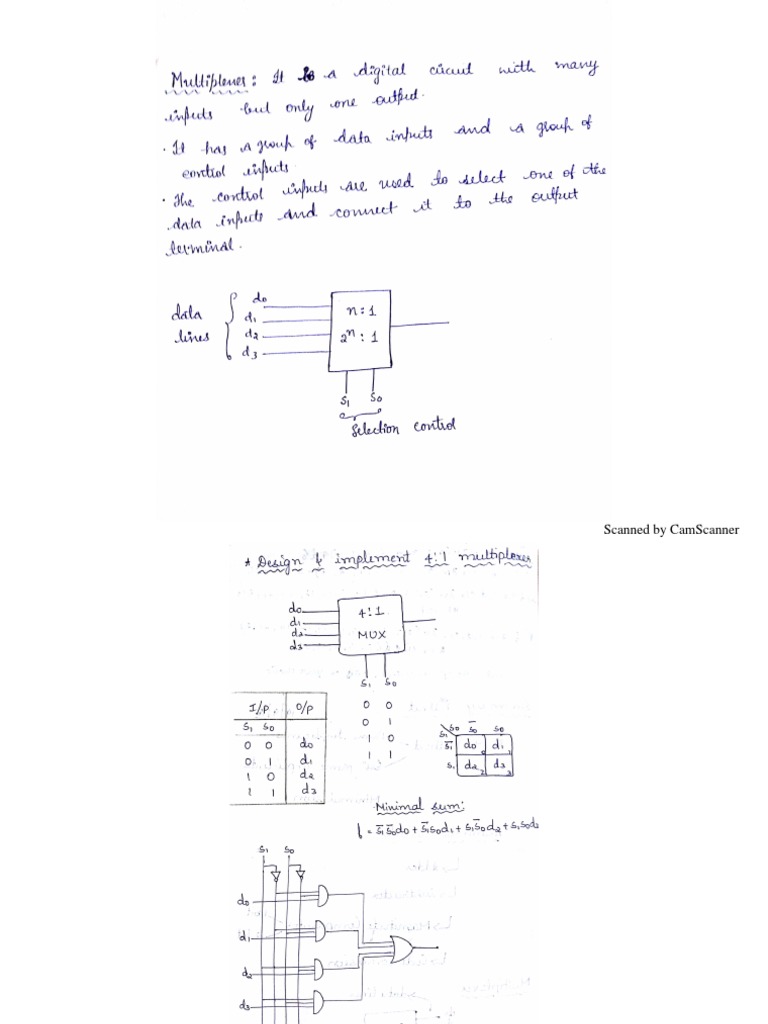 Multiplexer: It is a digital circuit with many
inputs but only one output.
· It has a group of data inputs and a group of
control inputs
· The control inputs are used to select one of the
data inputs and connect it to the output
terminal.
data lines
d0
d1
d2
d3
n:1
2^n : 1
S1 S0
selection control
Scanned by CamScanner
* Design & implement 4:1 multiplexer
d0
d1
d2
d3
4:1
MUX
S1 S0
0 0
0 1
1 0
1 1
I/P O/P
S1 S0
0 0 d0
0 1 d1
1 0 d2
1 1 d3
S1 S0 S̅0 S0
S̅1 d0 d1
S1 d2 d3
Minimal sum:
f = S̅1S̅0d0 + S̅1S0d1 + S1S̅0d2 + S1S0d3
S1 S0
d0
d1
d2
d3